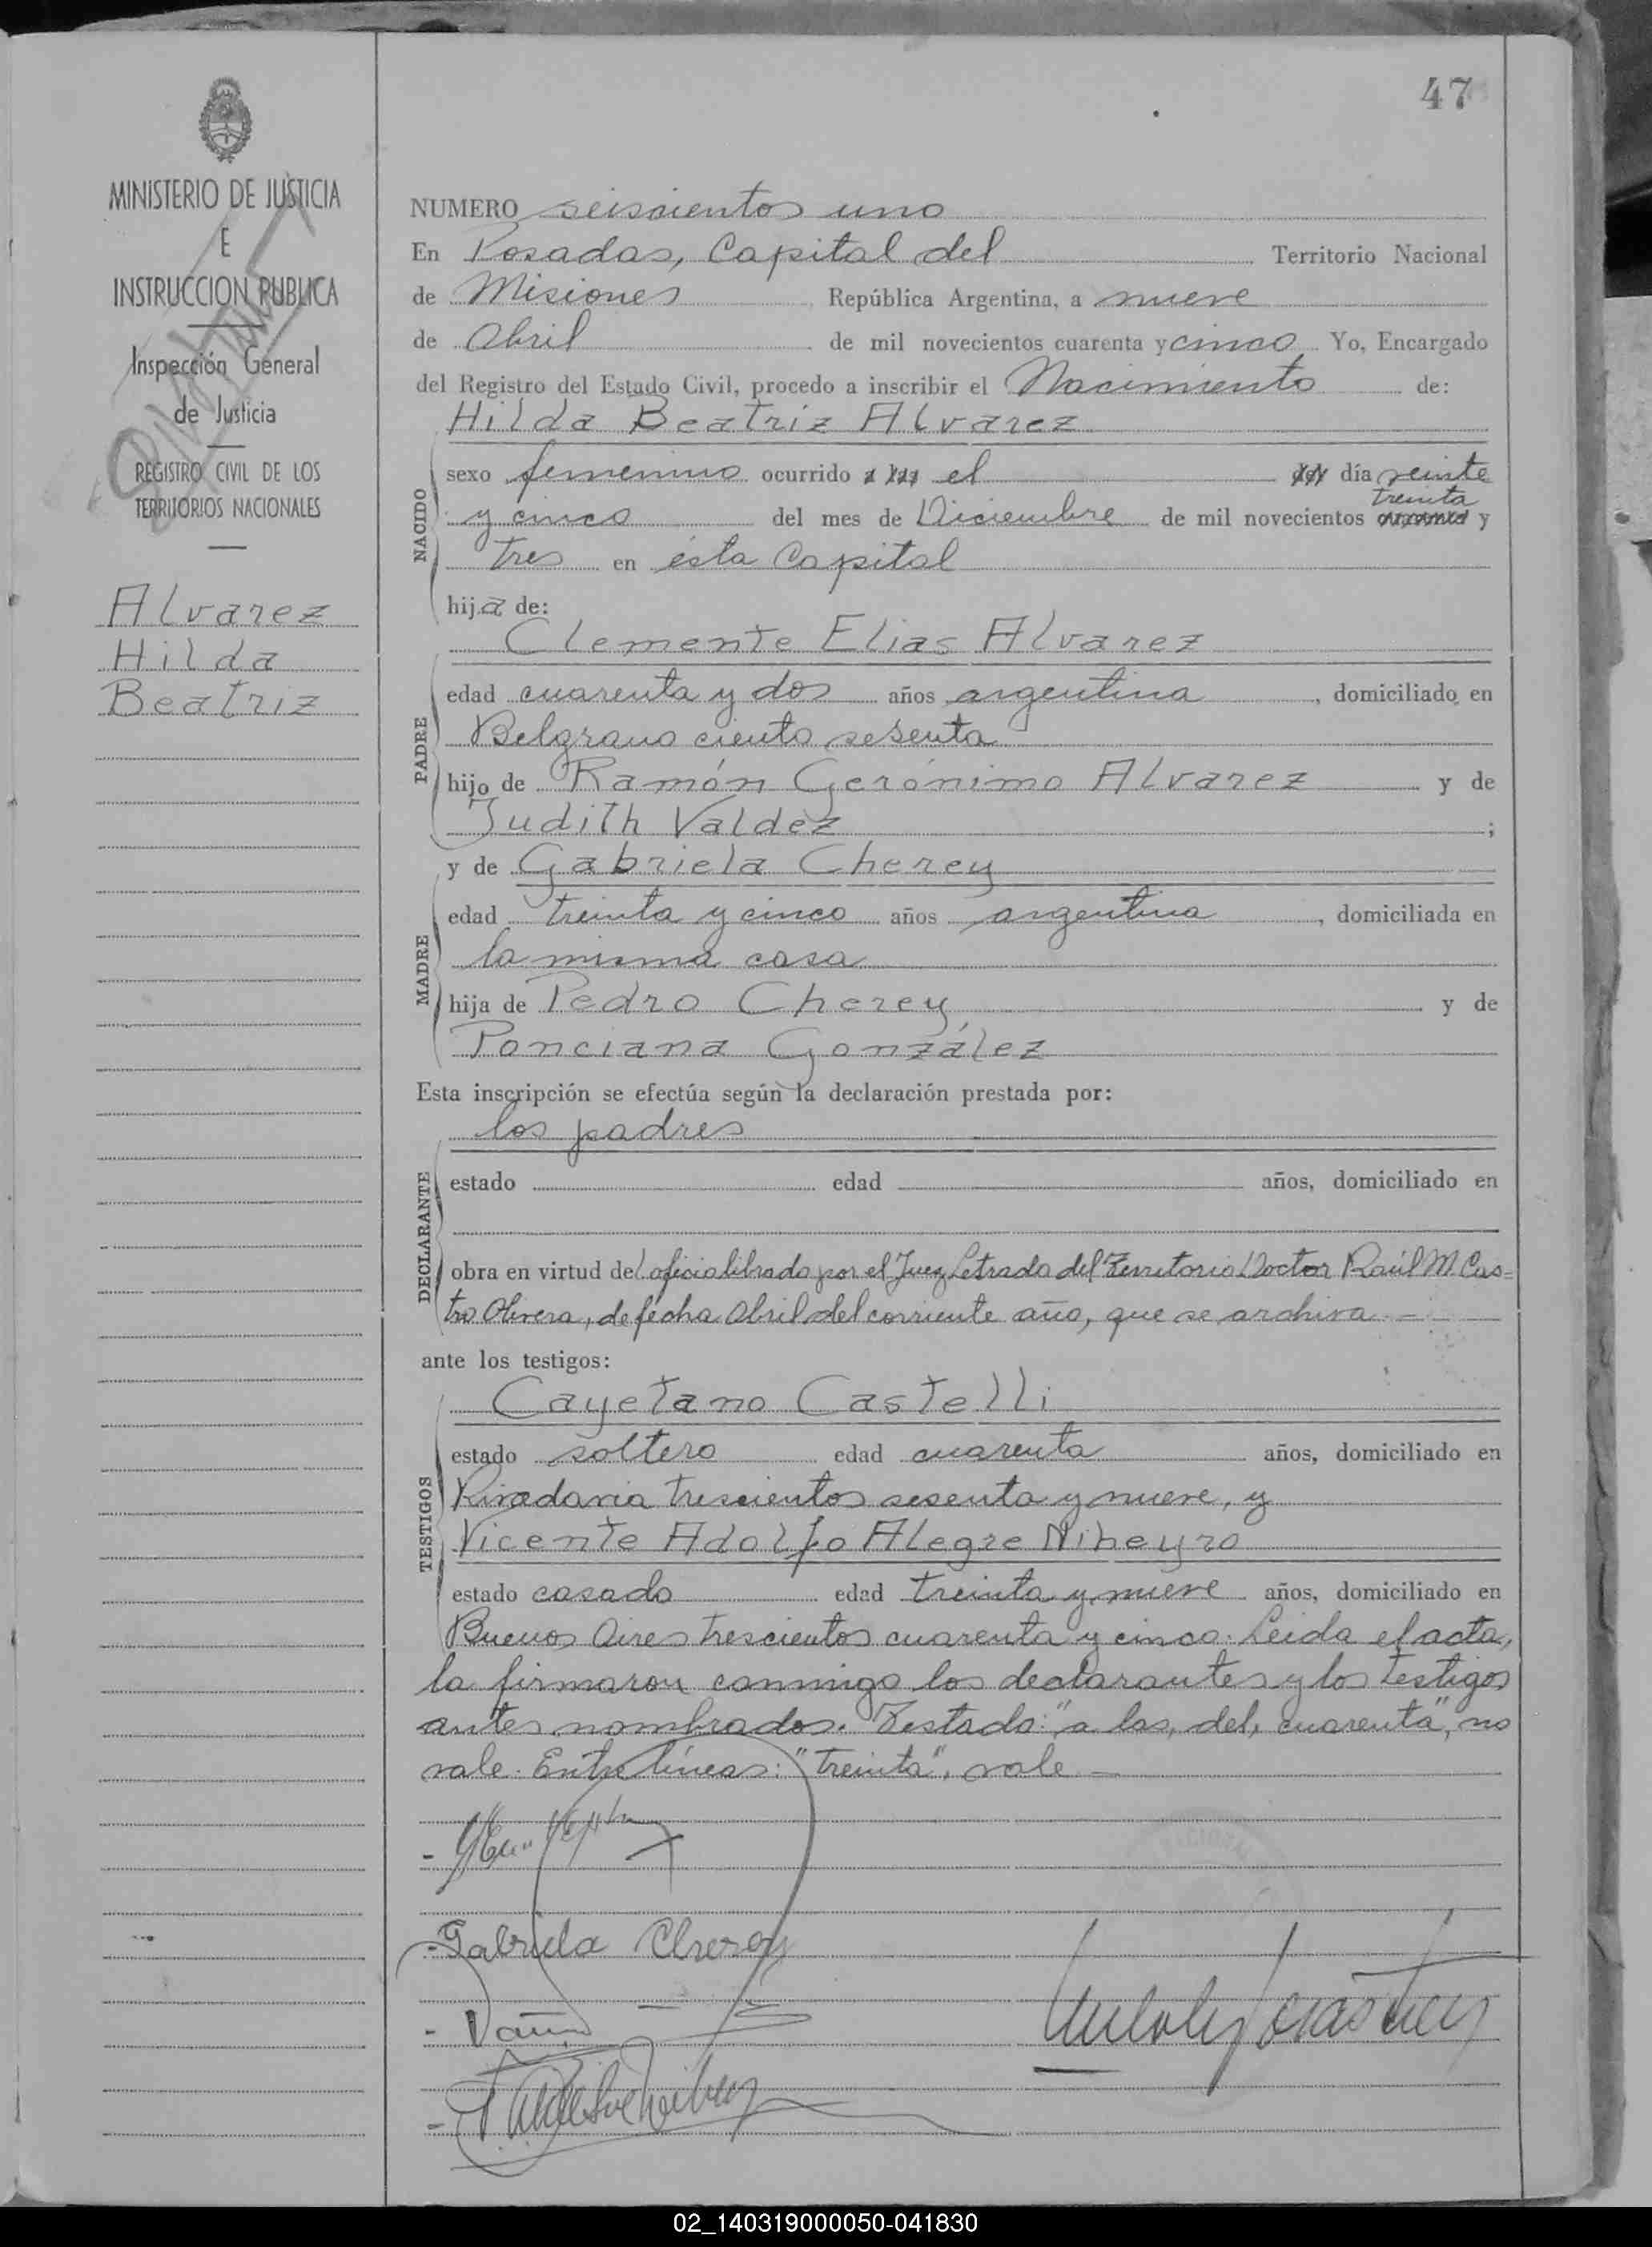 47
MINISTERIO DE JUSTICIA
E
INSTRUCCION PUBLICA
Inspección General
de Justicia
REGISTRO CIVIL DE LOS
TERRITORIOS NACIONALES
Alvarez
Hilda
Beatriz
NUMERO seiscientos uno
En Posadas, Capital del Territorio Nacional
de Misiones República Argentina, a nueve
de Abril de mil novecientos cuarenta y cinco Yo, Encargado
del Registro del Estado Civil, procedo a inscribir el Nacimiento de:
Hilda Beatriz Alvarez
NACIDO
sexo femenino ocurrido a las el del día veinte
treinta
y cinco del mes de Diciembre de mil novecientos cuarenta y
tres en ésta Capital
hija de:
Clemente Elias Alvarez
PADRE
edad cuarenta y dos años argentina, domiciliado en
Belgrano ciento sesenta
hijo de Ramón Gerónimo Alvarez y de
Judith Valdez;
y de Gabriela Cherey
MADRE
edad treinta y cinco años argentina, domiciliada en
la misma casa
hija de Pedro Cherey y de
Ponciana González
Esta inscripción se efectúa según la declaración prestada por:
los padres
DECLARANTE
estado edad años, domiciliado en
obra en virtud del oficio librado por el Juez Letrado del Territorio Doctor Raúl M. Cas=
tro Olivera, de fecha Abril del corriente año, que se archiva.-
ante los testigos:
Cayetano Castelli
TESTIGOS
estado soltero edad cuarenta años, domiciliado en
Rivadavia trescientos sesenta y nueve, y
Vicente Adolfo Alegre Niheyro
estado casado edad treinta y nueve años, domiciliado en
Buenos Aires trescientos cuarenta y cinco. Leida el acta,
la firmaron conmigo los declarantes y los testigos
antes nombrados. Testado: "a las, del, cuarenta", no
vale. Entre líneas: "treinta", vale.-
- Gabriela Cherey
02_140319000050-041830